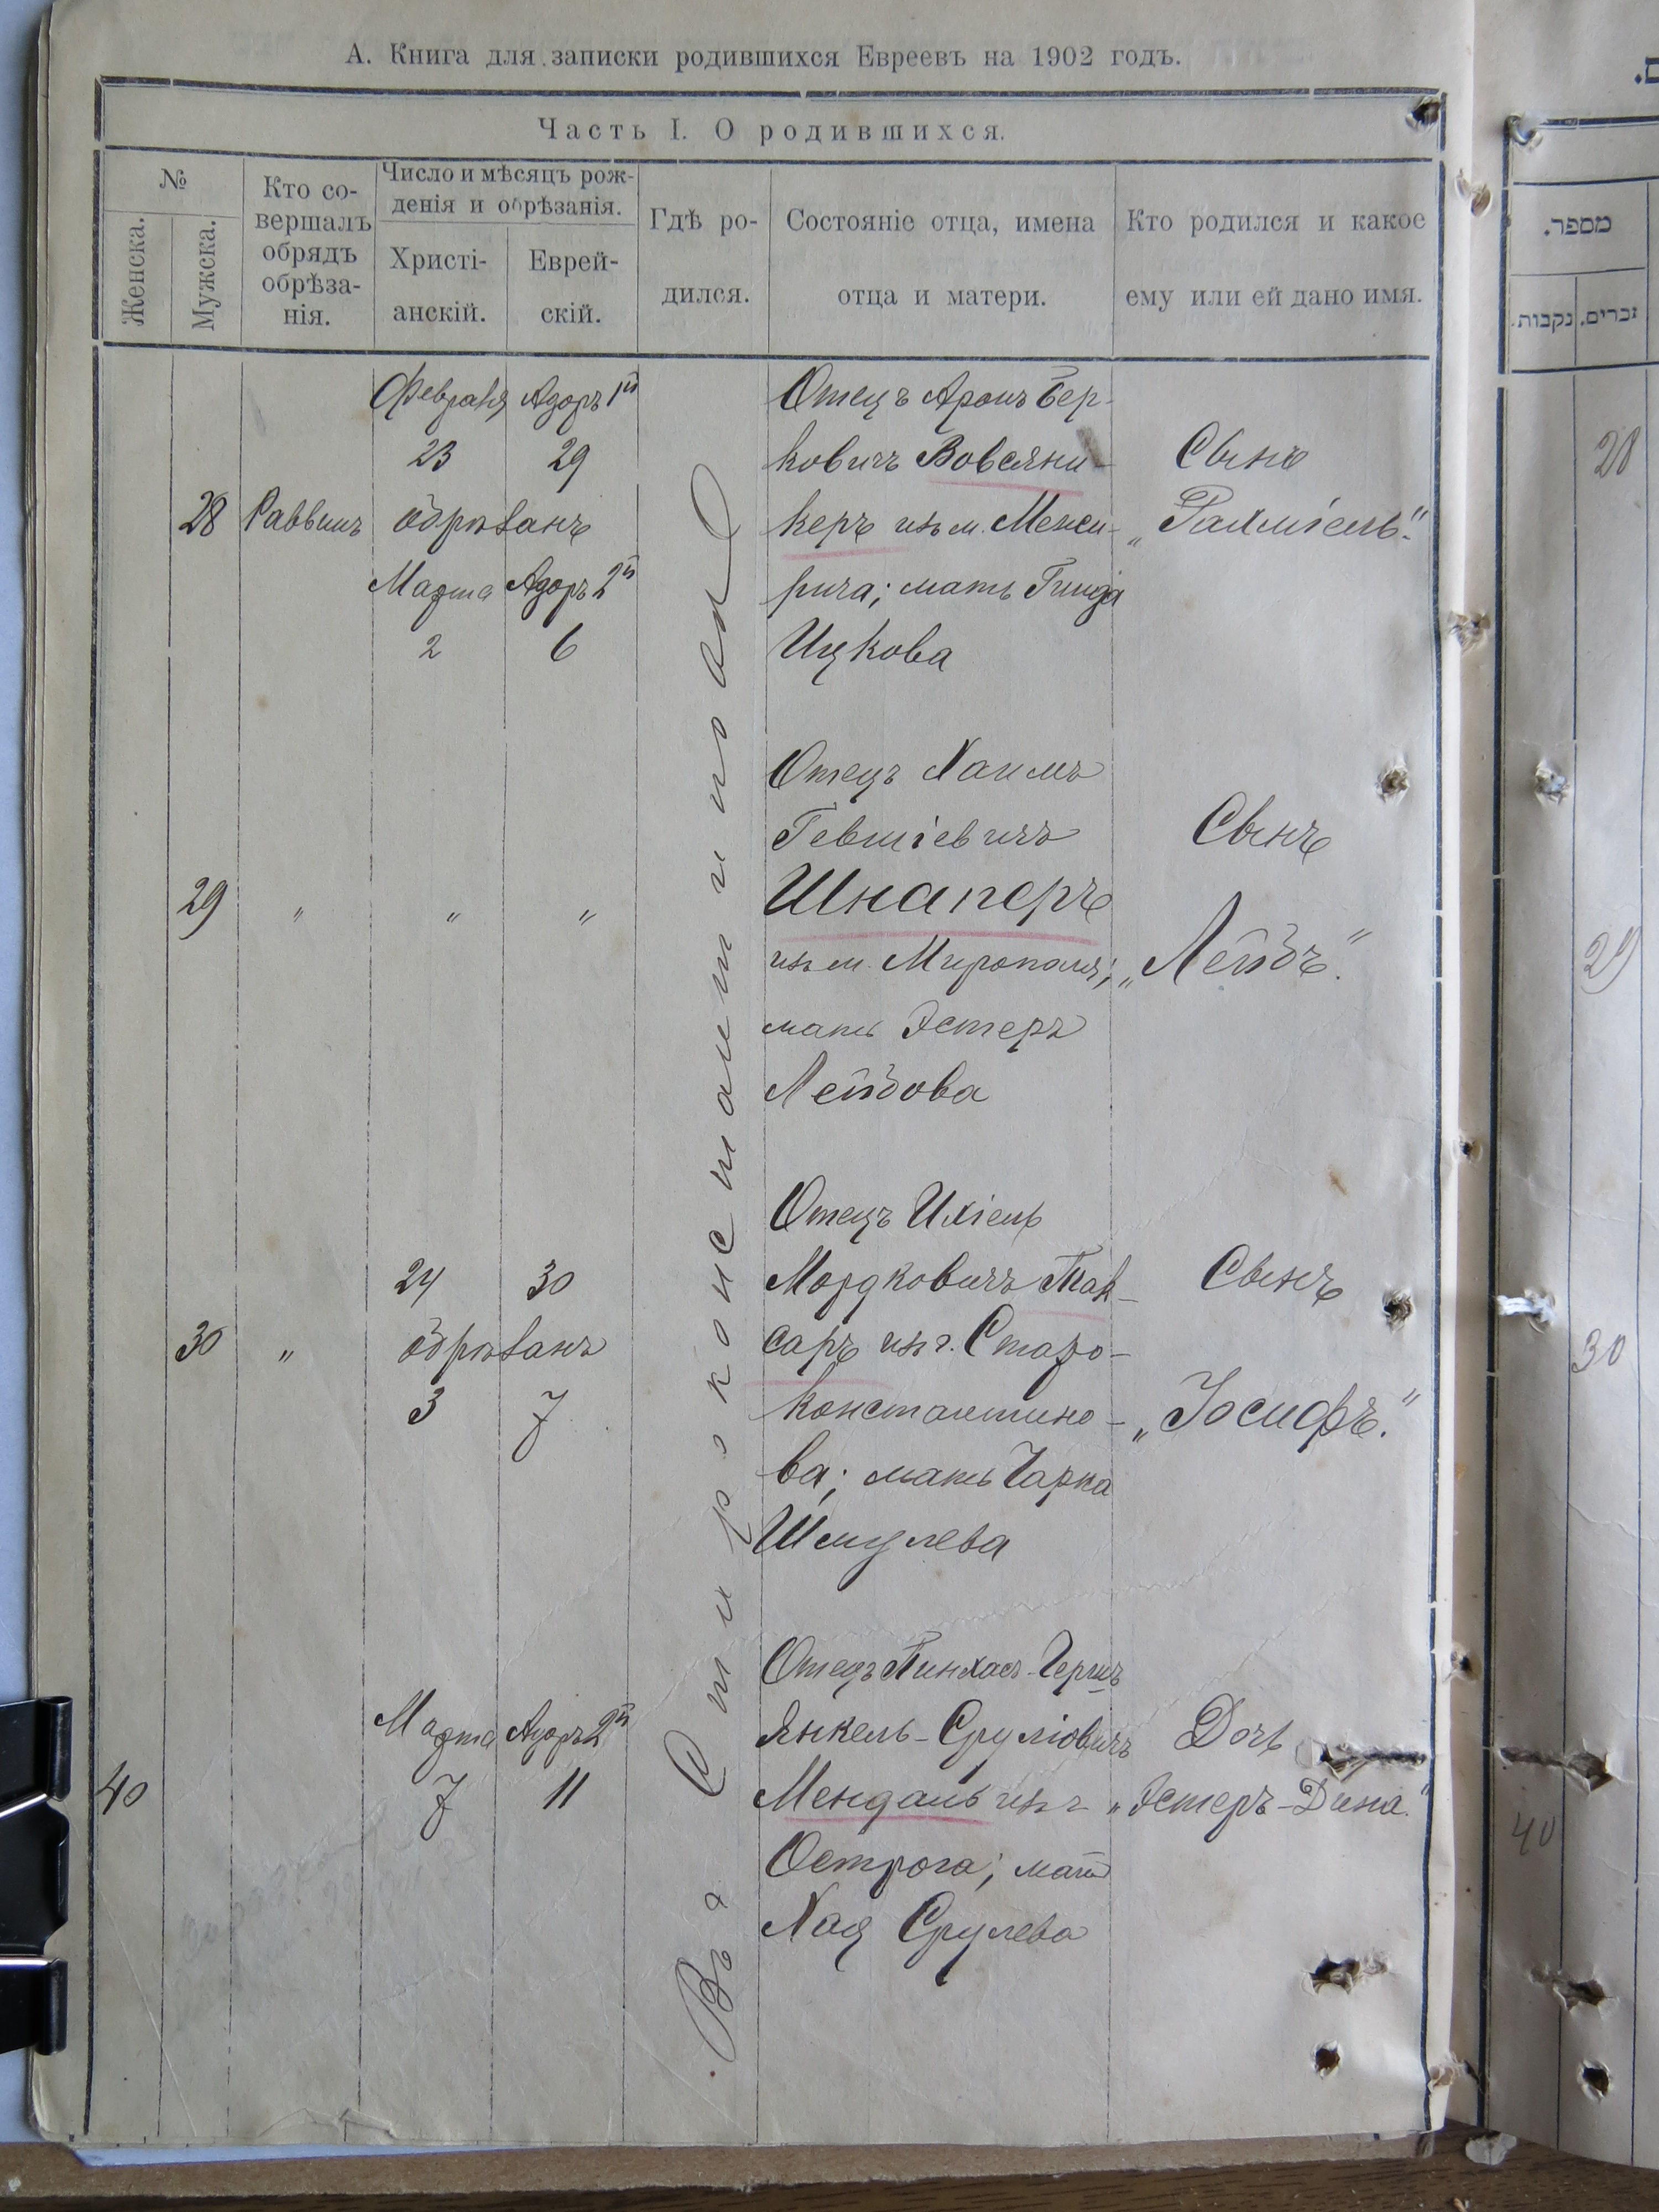 А. Книга для записки родившихся Евреевъ на 1902 годъ.
Часть I. О родившихся.
№
Женска.
Мужска.
Кто со-
вершалъ
обрядъ
обрѣза-
нія.
Число и мѣсяцъ рож-
денія и обрѣзанія.
Христі-
анскій.
Еврей-
скій.
Гдѣ ро-
дился.
Состояніе отца, имена
отца и матери.
Кто родился и какое
ему или ей дано имя.
Въ г. Староконстантиновѣ
Февраля Адоръ 1й
23 29
28 Раввинъ обрѣзанъ
Марта Адоръ 2й
2 6
Отецъ Аронъ Бер-
ковичъ Вовсяни-
керъ изъ м. Межи-
рича; мать Гинда
Ицкова
Сынъ
„Рахміель“.
29 „ „ „
Отецъ Хаимъ
Гевшіевичъ
Шнаперъ
изъ м. Мирополя;
мать Эстеръ
Лейбова
Сынъ
„Лейбъ“.
24 30
30 „ обрѣзанъ
3 7
Отецъ Ихіель
Мордковичъ Так-
саръ изъ г. Старо-
константино-
ва; мать Чарна
Шмулева
Сынъ
„Іосифъ“.
Марта Адоръ 2й
40 7 11
Отецъ Пинхасъ-Гершъ
Янкель-Сруліовичъ
Мендаль изъ г
Острога; мать
Хая Срулева
Дочь
„Эстеръ-Дина.“
מספר.
זכרים. נקבות.
28
29
30
40